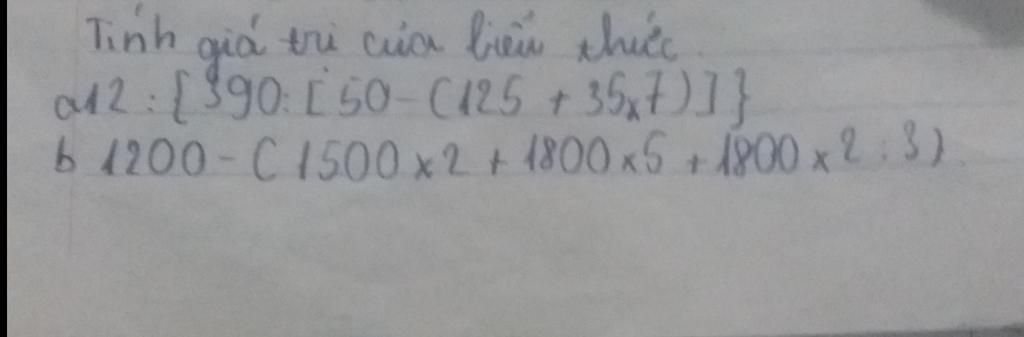 Tính giá trị của biểu thức
a 12 : { 390 : [ 50 - ( 125 + 35 x 7 ) ] }
b 1200 - ( 1500 x 2 + 1800 x 5 + 1800 x 2 : 3 )